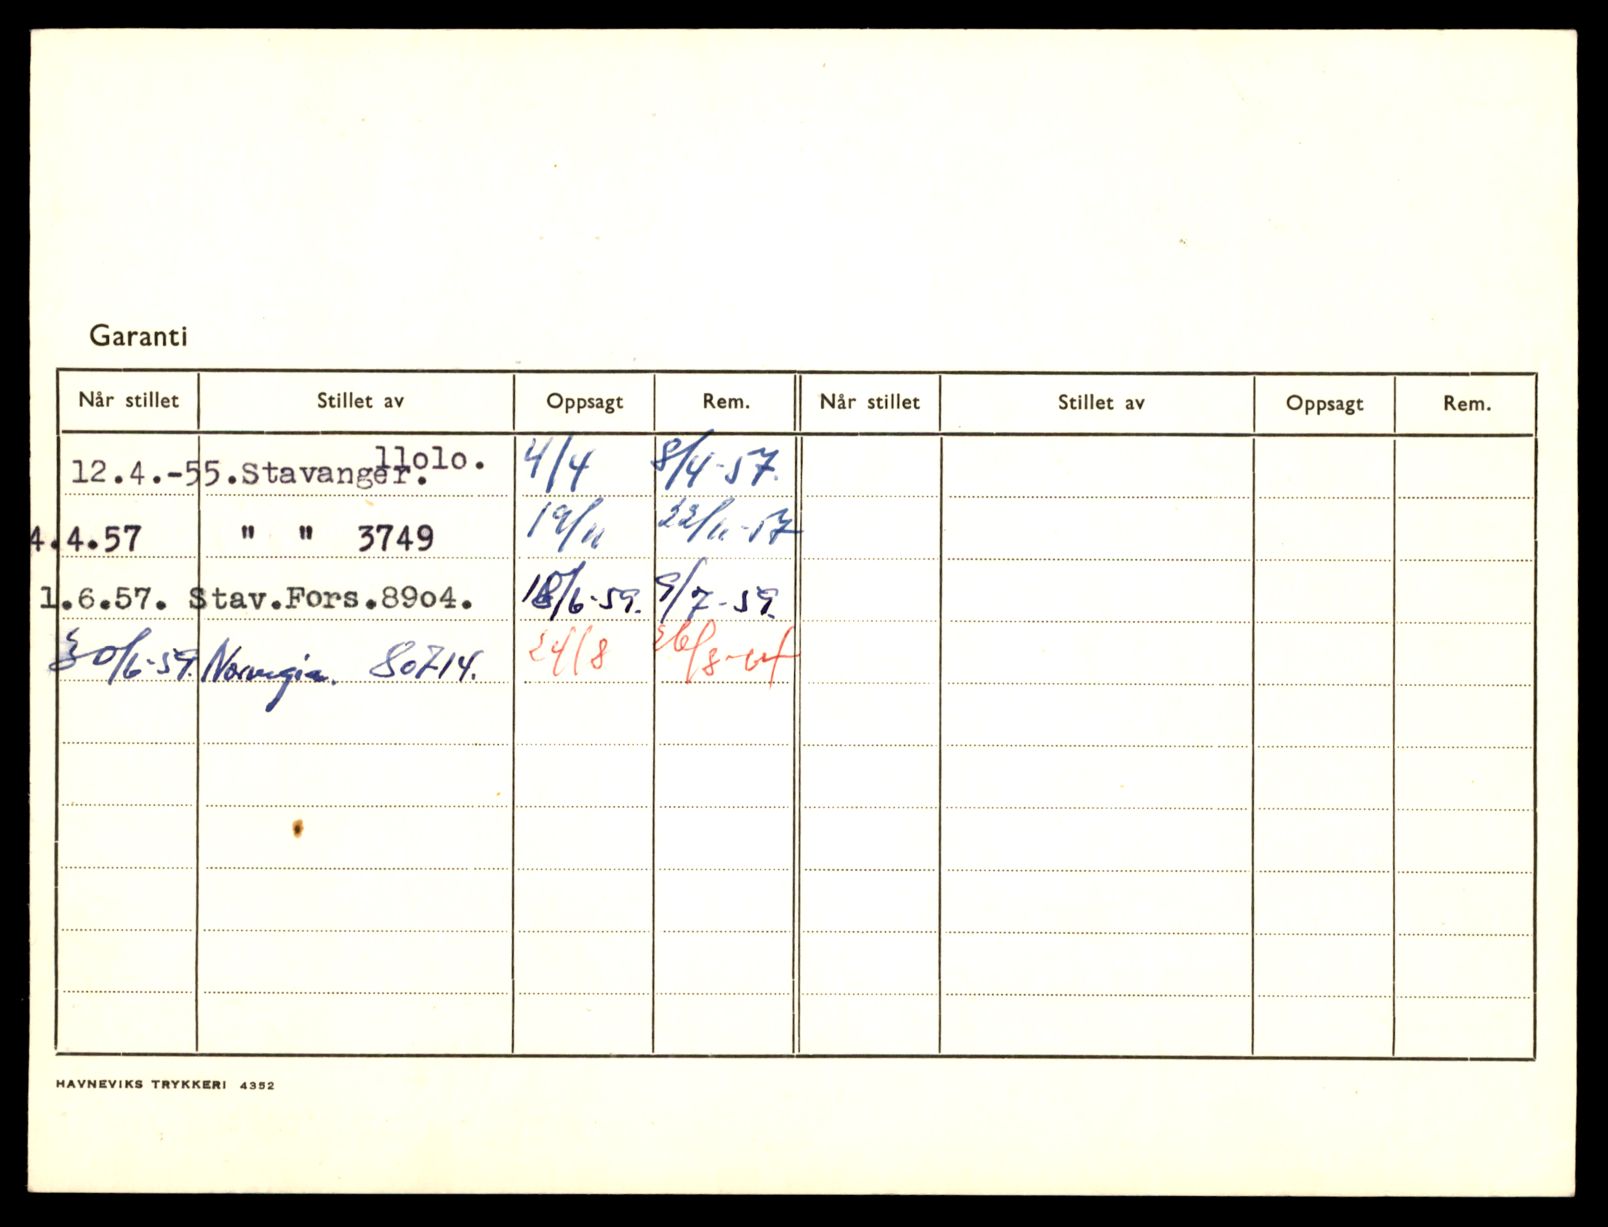 Garanti
Når stillet Stillet av Oppsagt Rem. Når stillet Stillet av Oppsagt Rem.
12.4.-55. Stavanger. 11o1o. 4/4 8/4-57.
4.4.57 " " 3749 19/11 22/11-57
1.6.57. Stav.Fors.89o4. 18/6-59. 9/7-59.
30/6-59. Norvegia. 80714. 24/8 26/8-64
HAVNEVIKS TRYKKERI 4352